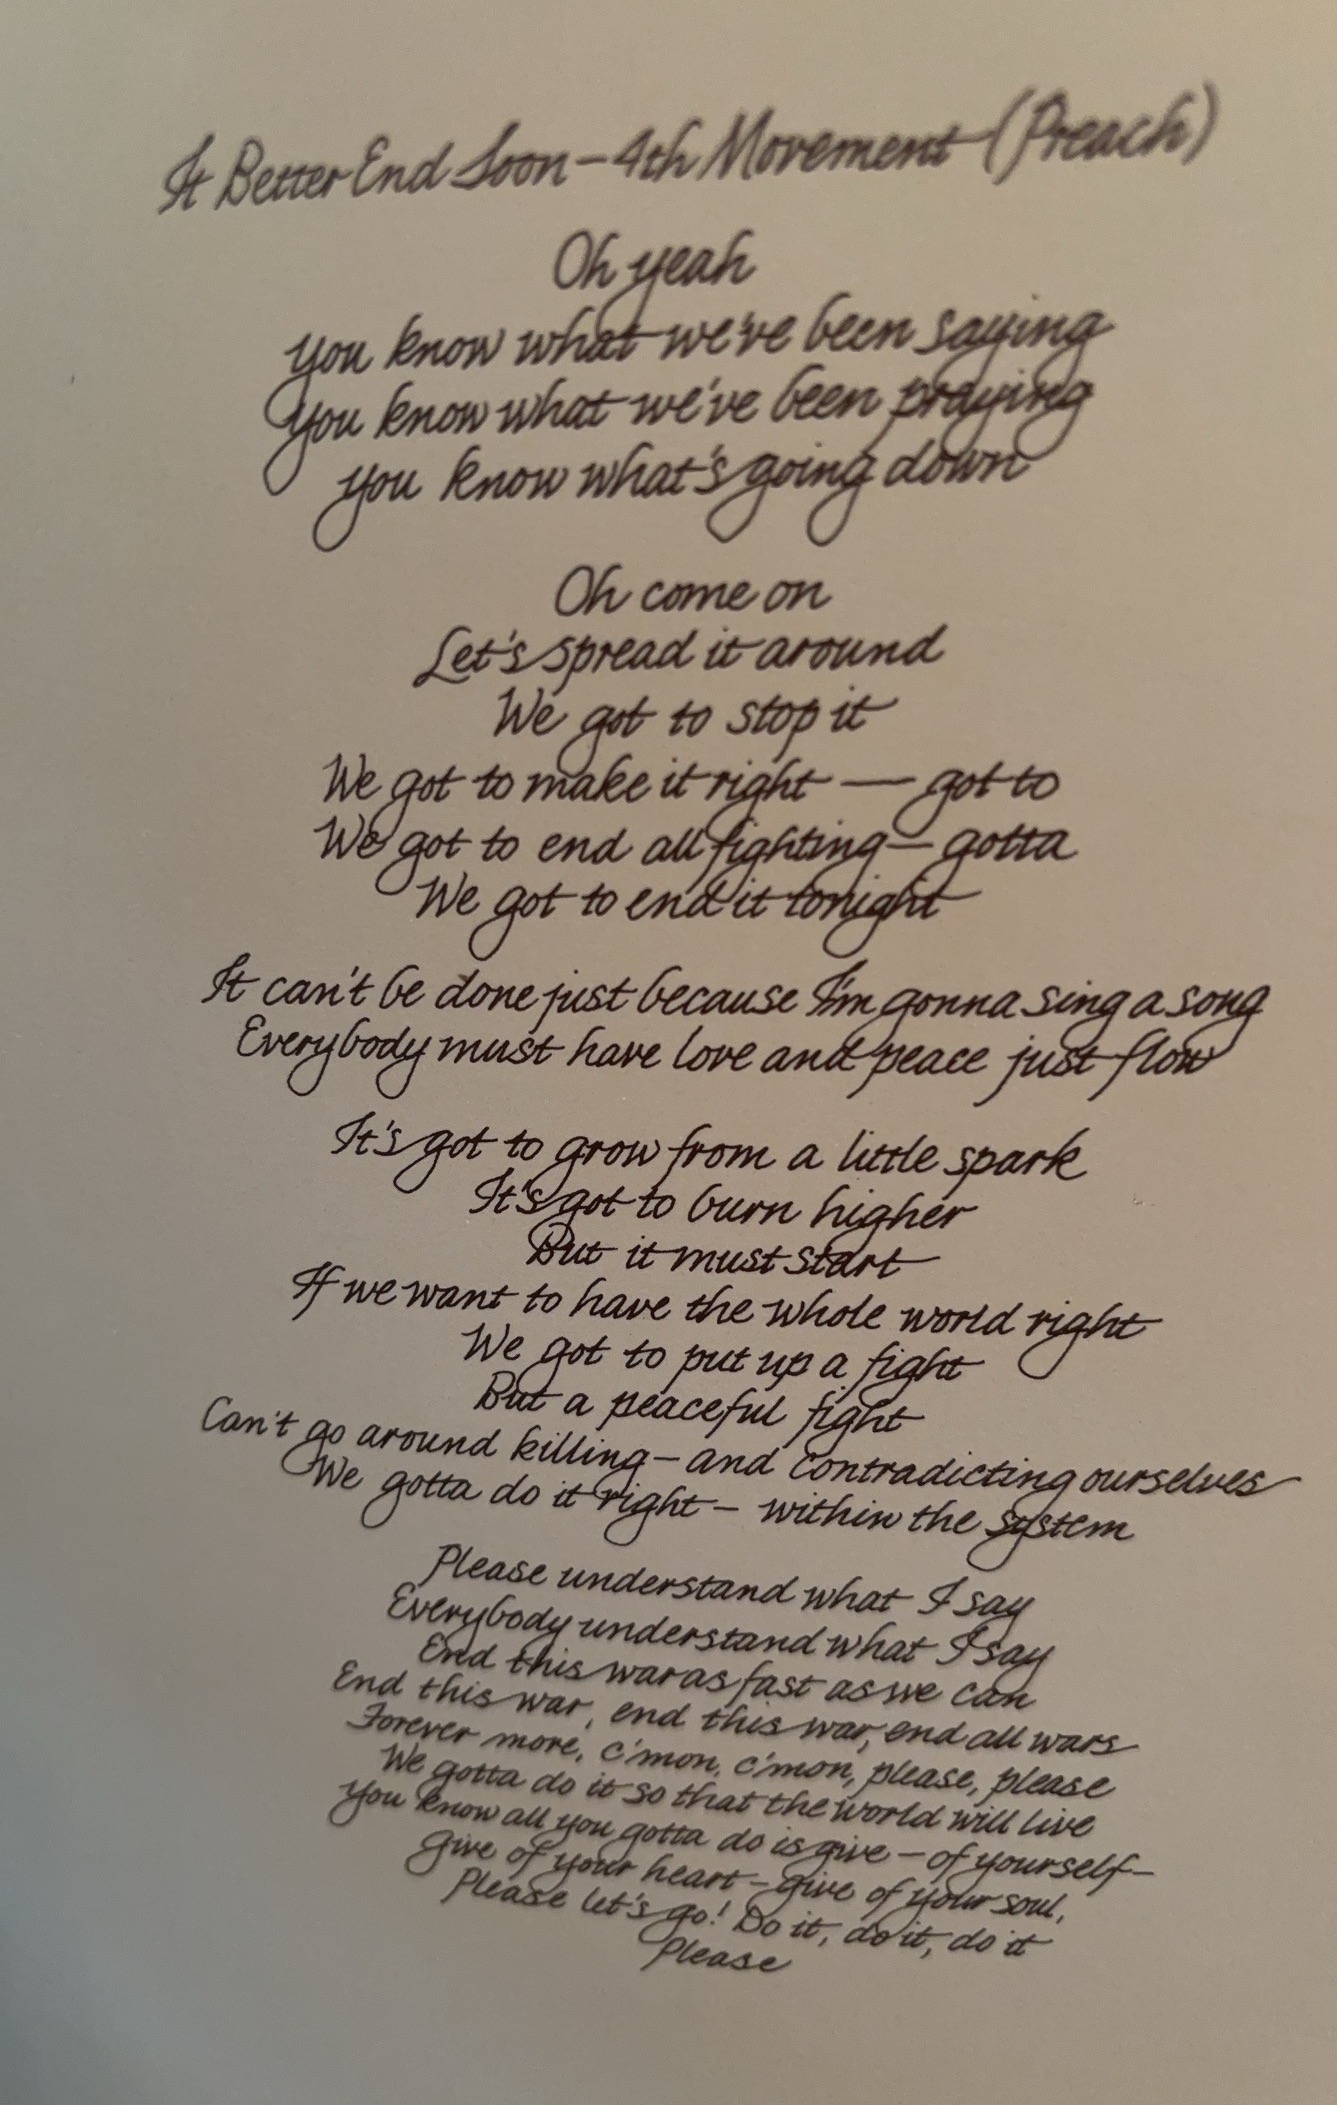 It Better End Soon – 4th Movement (Preach)
Oh yeah
you know what we've been saying
you know what we've been praying
you know what's going down
Oh come on
Let's spread it around
We got to stop it
We got to make it right — got to
We got to end all fighting — gotta
We got to end it tonight
It can't be done just because I'm gonna sing a song
Everybody must have love and peace just flow
It's got to grow from a little spark
It's got to burn higher
But it must start
If we want to have the whole world right
We got to put up a fight
But a peaceful fight
Can't go around killing – and contradicting ourselves
We gotta do it right – within the system
Please understand what I say
Everybody understand what I say
End this war as fast as we can
End this war, end this war, end all wars
Forever more, c'mon, c'mon, please, please
We gotta do it so that the world will live
You know all you gotta do is give – of yourself –
give of your heart – give of your soul,
Please let's go! Do it, do it, do it
Please